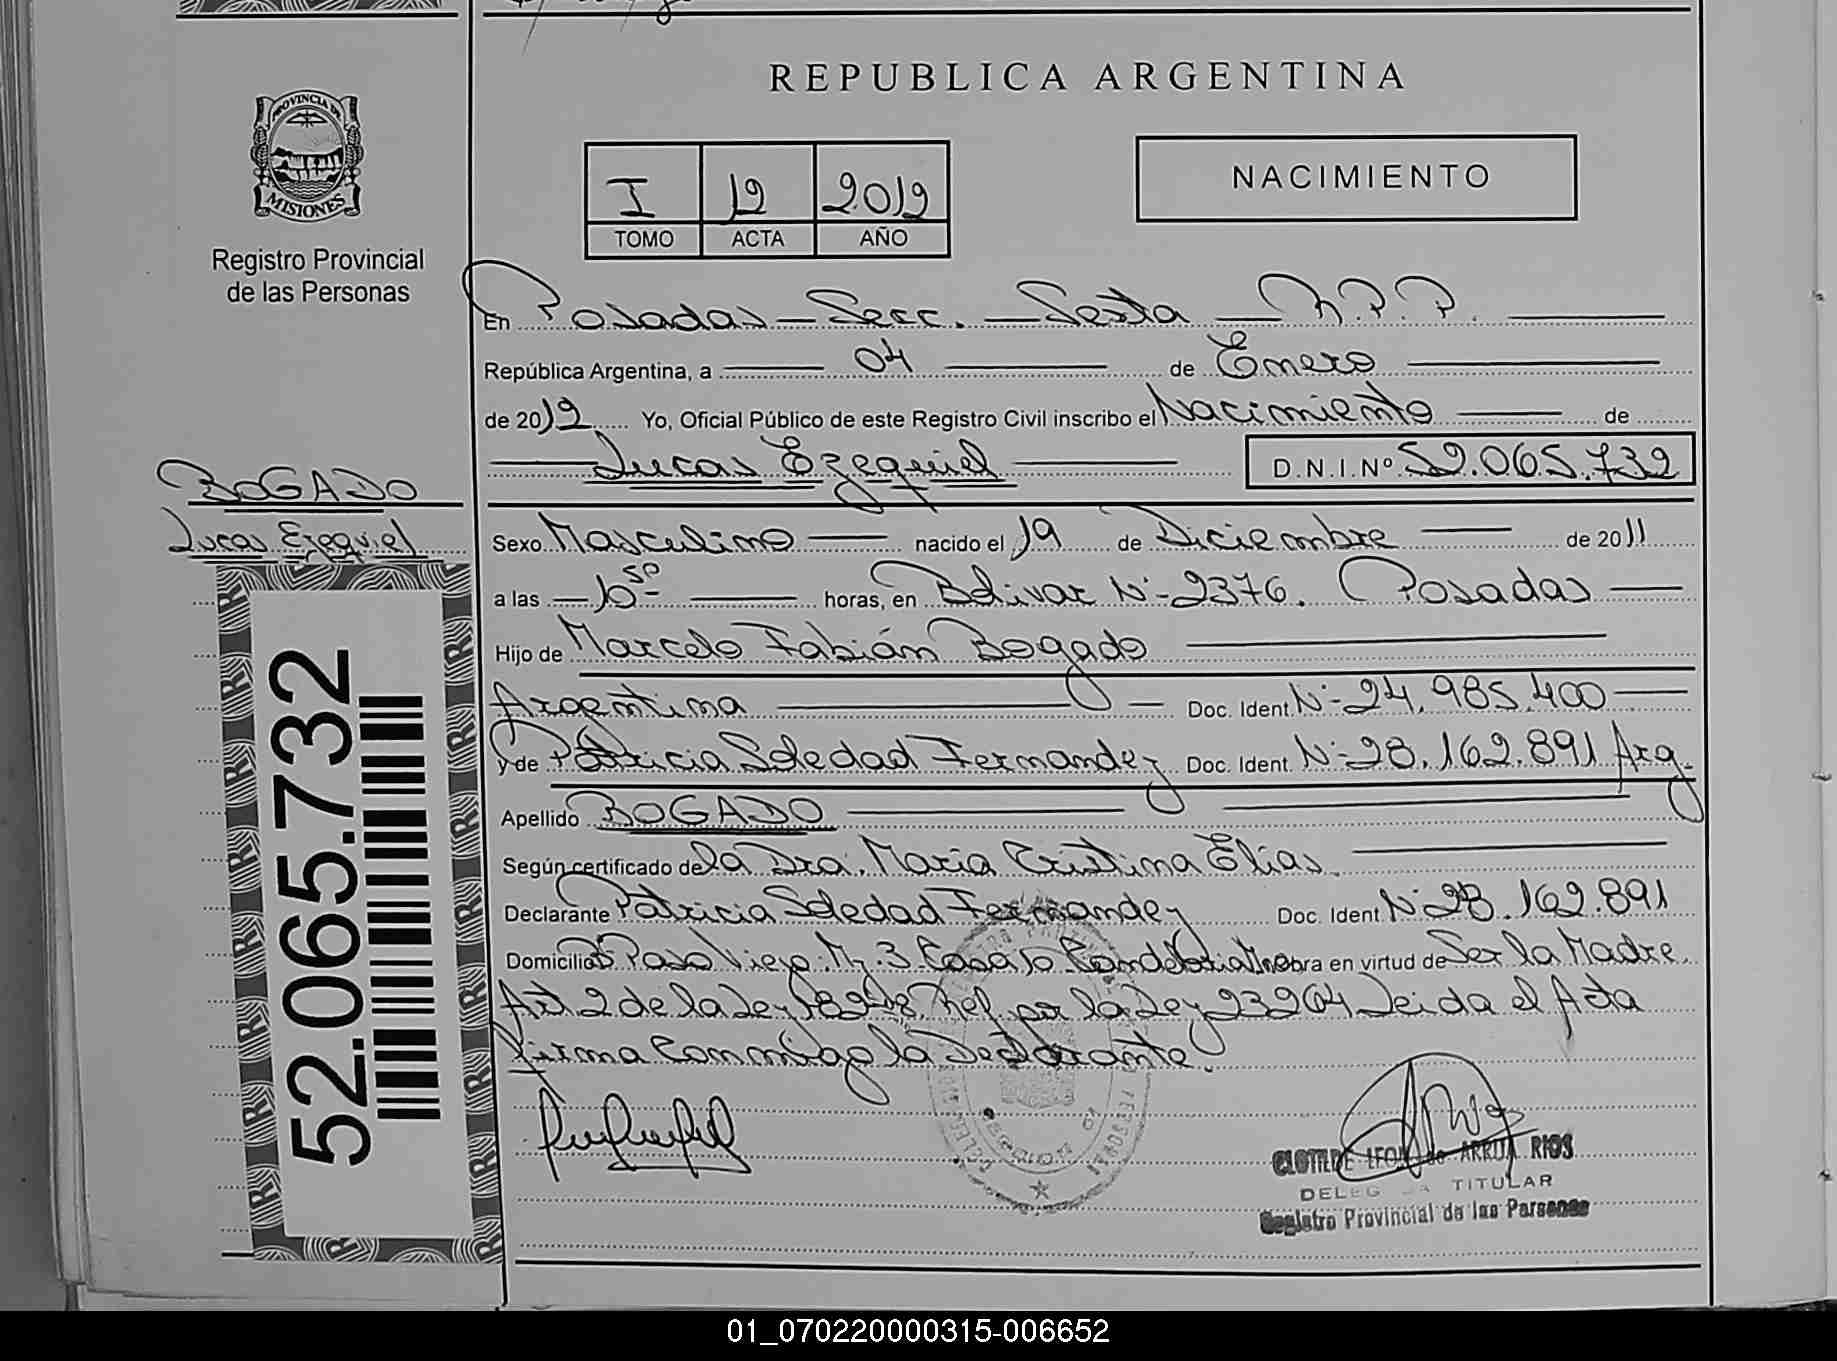 REPUBLICA ARGENTINA
PROVINCIA DE
MISIONES
Registro Provincial
de las Personas
I 12 2012
TOMO ACTA AÑO
NACIMIENTO
En Posadas - Secc. - Sexta - R.P.P.
República Argentina, a 04 de Enero
de 2012 Yo, Oficial Público de este Registro Civil inscribo el Nacimiento de
Lucas Ezequiel D.N.I.Nº 52.065.732
BOGADO
Lucas Ezequiel
Sexo Masculino nacido el 19 de Diciembre de 2011
a las 10 50 horas, en Bolivar Nº 2376. Posadas
Hijo de Marcelo Fabián Bogado
Argentina Doc. Ident. Nº 24.985.400
y de Patricia Soledad Fernandez Doc. Ident. Nº 28.162.891 Arg.
Apellido BOGADO
Según certificado de la Dra. Maria Cristina Elias
Declarante Patricia Soledad Fernandez Doc. Ident Nº 28.162.891
Domicilio Bº Paso Viejo. Mz. 3 Casa 10 Candelaria Mnes obra en virtud de Ser la Madre
Art 2 de la Ley 18248 Ref. por la Ley 23264 Leida el Acta
firma Conmigo la Declarante.
52.065.732
CLOTILDE LEON de ARRUA RIOS
DELEGADA TITULAR
Registro Provincial de las Personas
01_070220000315-006652